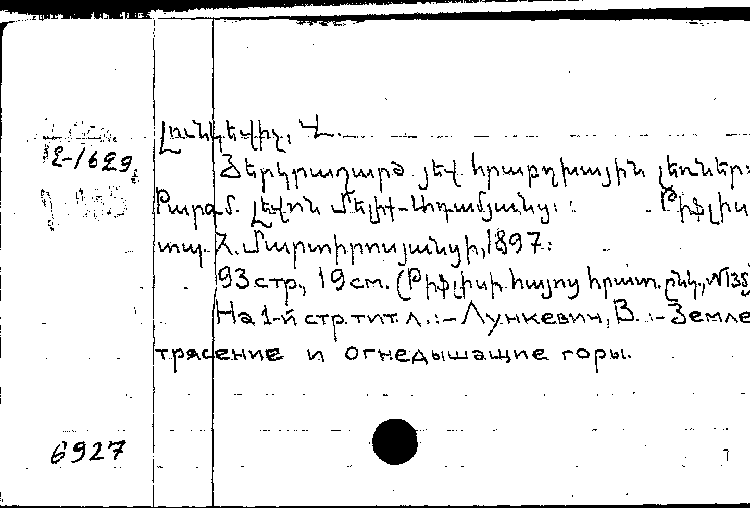 Լունկեվիչ, Վ.
Է-1629,
Յերկրաշարժ յեվ հրաբղխային լեռներ:
Թարգմ. Լեվոն Մելիք-Ադամյանց: Թիֆլիս
տպ. Հ. Մարտիրոսյանցի, 1897:
93 стр., 19 см. (Թիֆլիսի հայոց հրատ. ընկ., №135)
На 1-й стр. тит л.:-Лункевич, В.:-Земле
трясение и огнедышащие горы.
6927